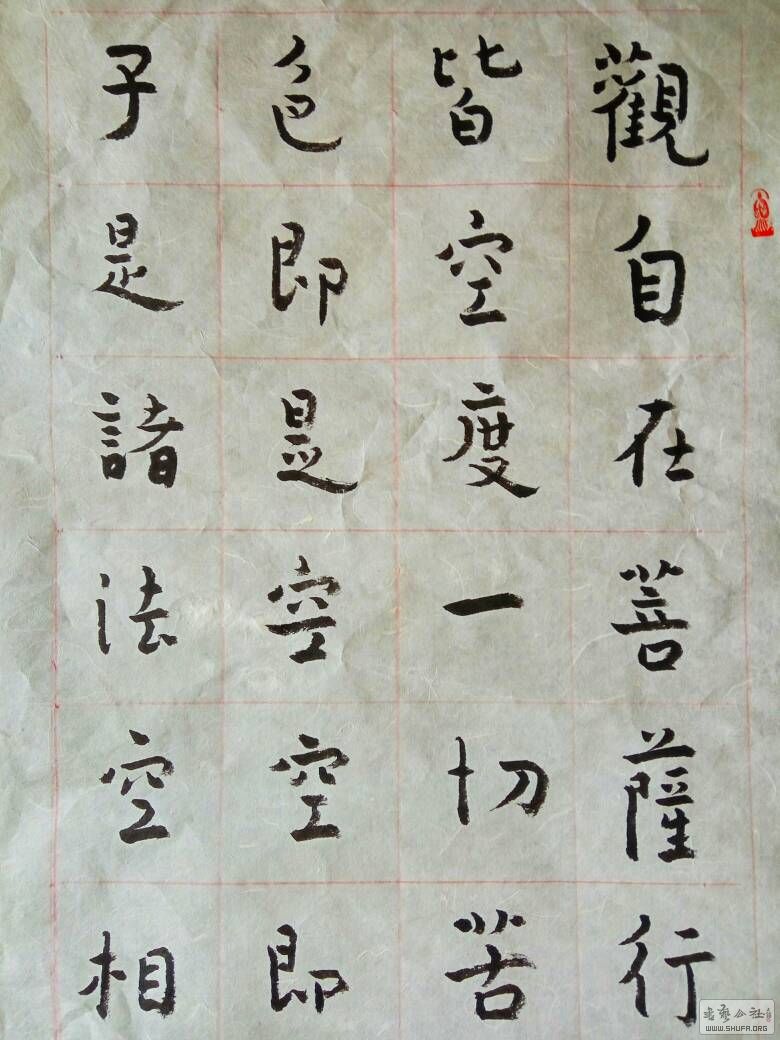 觀自在菩薩行
皆空度一切苦
色即是空空即
子是諸法空相
WWW.SHUFA.ORG